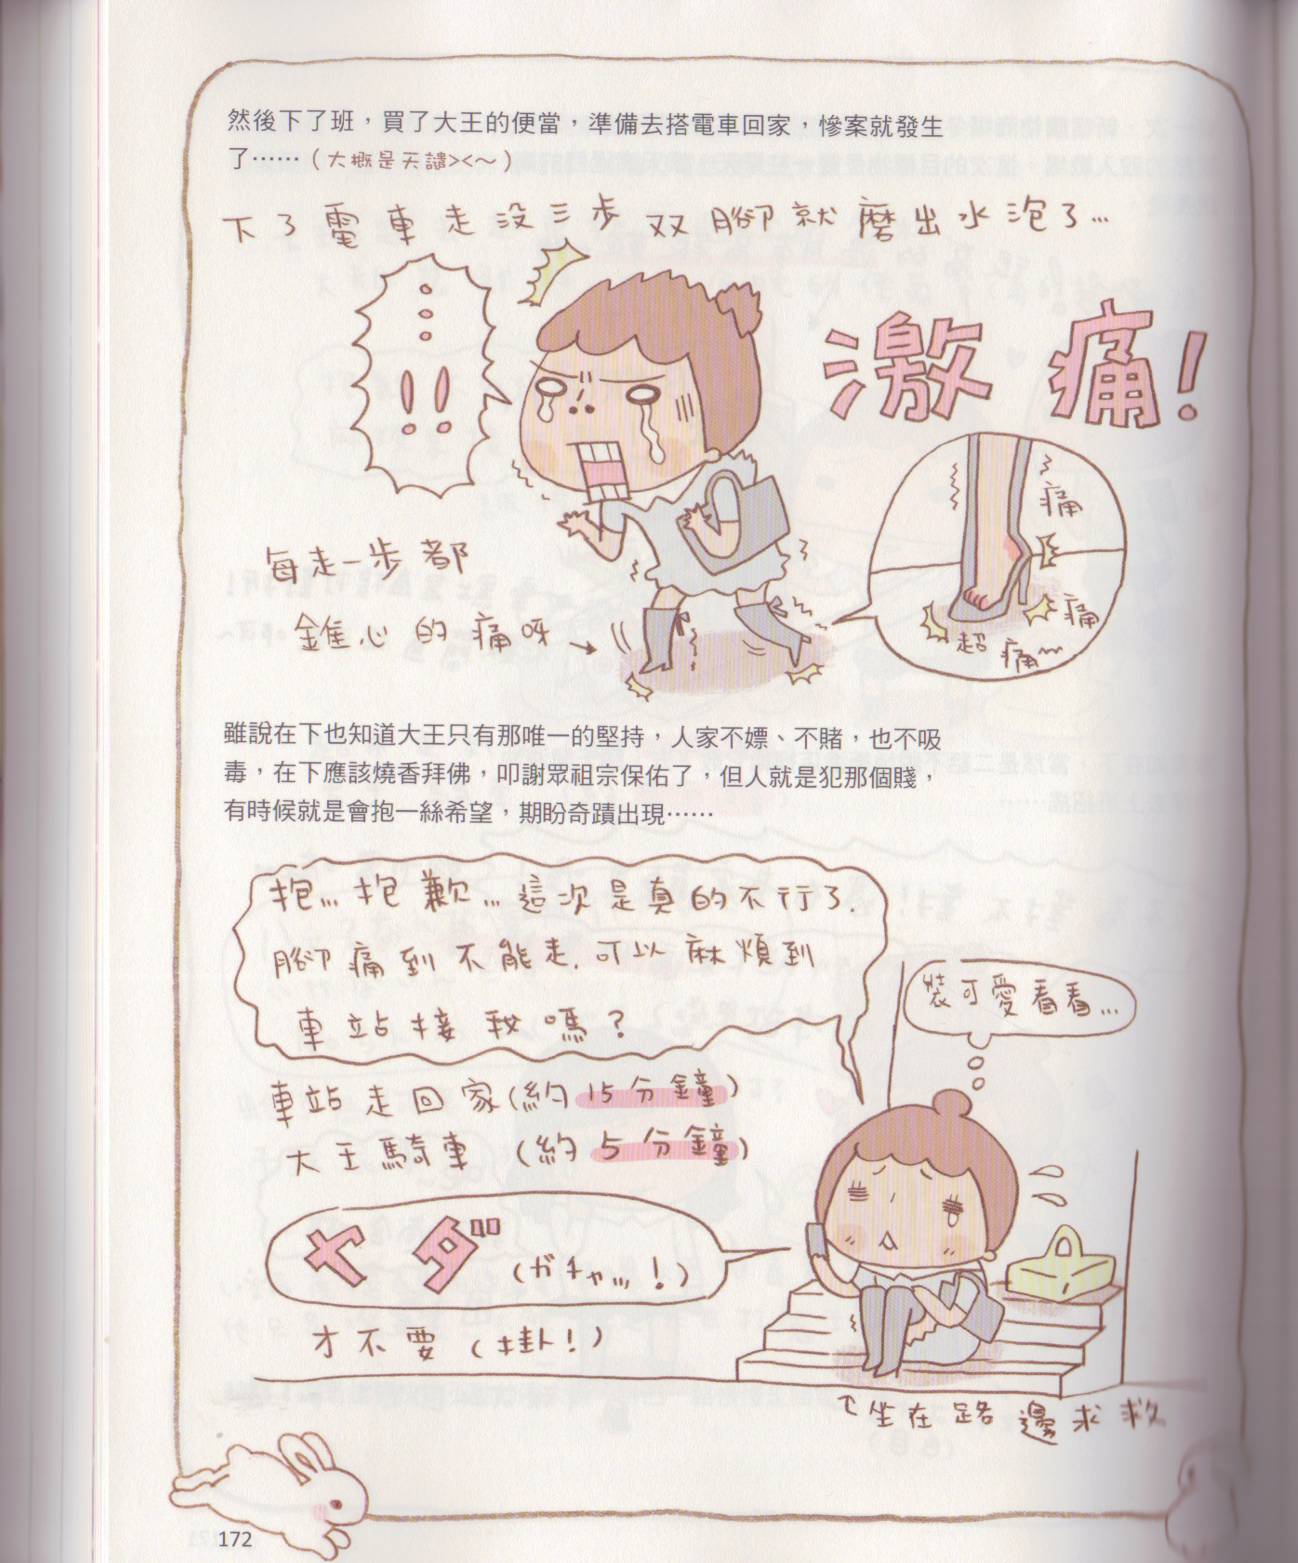 然後下了班，買了大王的便當，準備去搭電車回家，慘案就發生
了⋯⋯（大概是天譴><～）
下了電車走沒三步双腳就磨出水泡了...
...!!
激痛！
痛
痛
超痛～
每走一步都
錐心的痛呀→
雖說在下也知道大王只有那唯一的堅持，人家不嫖、不賭，也不吸
毒，在下應該燒香拜佛，叩謝眾祖宗保佑了，但人就是犯那個賤，
有時候就是會抱一絲希望，期盼奇蹟出現⋯⋯
抱...抱歉...這次是真的不行了.
腳痛到不能走.可以麻煩到
車站接我嗎？
裝可愛看看...
車站走回家(約15分鐘)
大王騎車 (約5分鐘)
ヤダ(ガチャッ！)
才不要(掛！)
↑坐在路邊求救
172